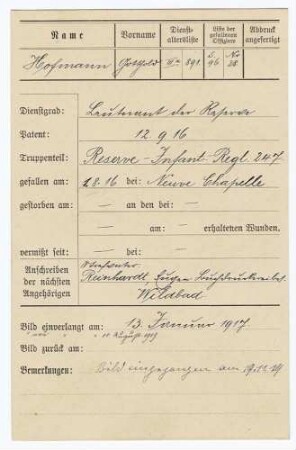 Name Vorname Dienst-altersliste Liste der gefallenen Offiziere Abdruck angefertigt
Hofmann Gotthold 891 S. 96 No 28
Dienstgrad: Leutenant der Reserve
Patent: 12. 9. 16
Truppenteil: Reserve-Infant. Regl. 247
gefallen am: 18.16 bei: Neuve Chapelle
gestorben am: — an den bei: —
— am: — erhaltenen Wunden.
vermißt seit: — bei: —
Anschreiben der nächsten Angehörigen
Reinhardt, Eugen
Wildbad
Bild einverlangt am: 13. Januar 1917
" " " August 1919
Bild zurück am:
Bemerkungen: Bild eingegangen am